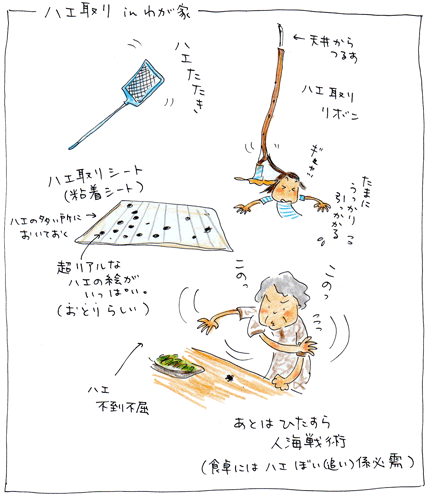 ハエ取り in わが家
ハエたたき
天井から
つるす
ハエ取り
リボン
ギャッ
たまに
うっかり
引っかかる
ハエ取りシート
(粘着シート)
ハエの多い所に
おいておく
超リアルな
ハエの絵が
いっぱい。
(おとりらしい)
このっ
このっ
ハエ
不到不屈
あとはひたすら
人海戦術
(食卓にはハエぼい(追い)係必需)